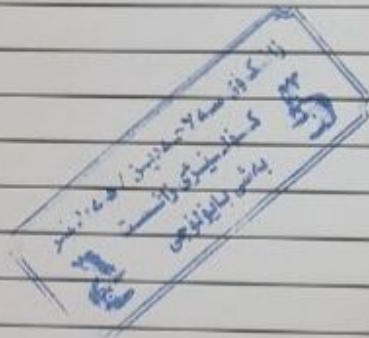 زانکۆی سەلاحەددین / هەولێر
کۆلێژی زانست
بەشی بایۆلۆجی